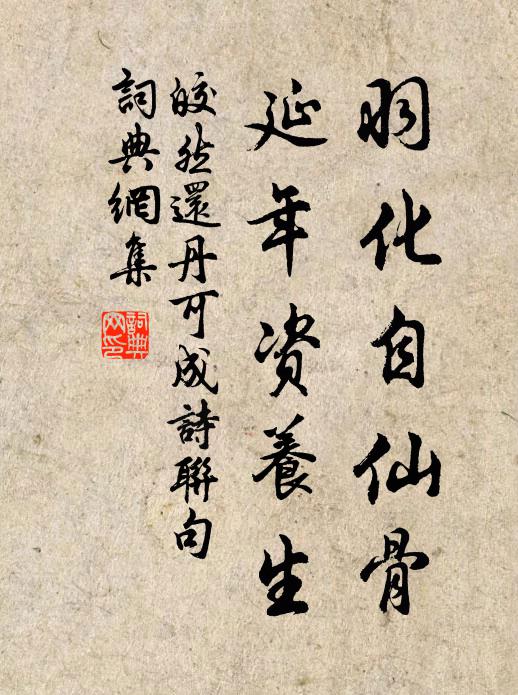 羽化自仙骨
延年资養生
皎然還丹可成詩聯句
詞典網集
詞典網印